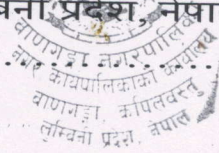 प्रदेश, नेपा
वाणगङ्गा नगरपालिका
नगर कार्यपालिकाको कार्यालय
वाणगङ्गा, कपिलवस्तु
लुम्बिनी प्रदेश, नेपाल